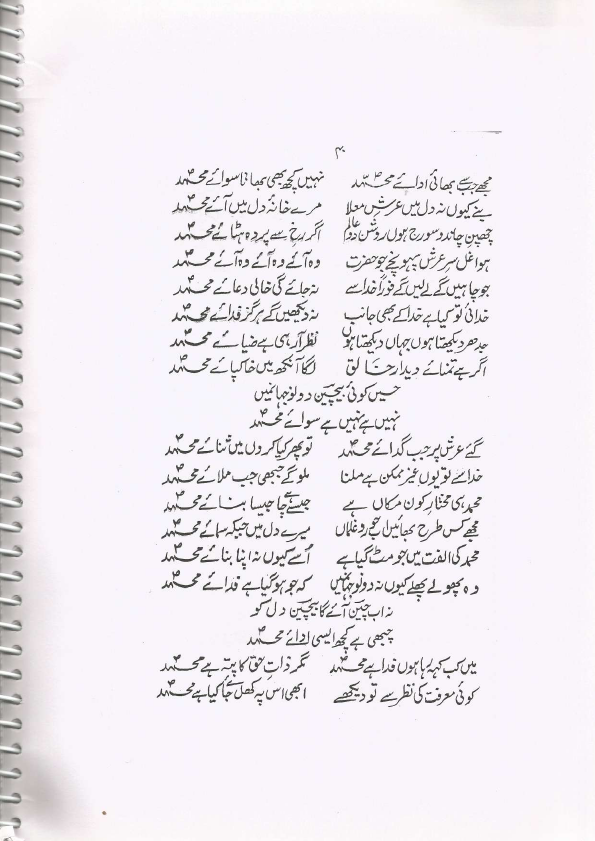 ۴
مجھے جب سے بھائی ادائے محمدؐ نہیں کچھ بھی بھاتا سوائے محمدؐ
بنے کیوں نہ دل میں عرشِ معلا مرے خانۂ دل میں آئے محمدؐ
چھپیں چاند و سورج ہوں روشن دو عالم اگر رخ سے پردہ ہٹائے محمدؐ
ہوا غل سرِ عرش پہونچے جو حضرت وہ آئے وہ آئے وہ آئے محمدؐ
جو چاہیں گے لے لیں گے فوراً خدا سے نہ جائے گی خالی دعائے محمدؐ
خدائی تو کیا ہے خدا کے بھی جانب نہ دیکھیں گے ہرگز فدائے محمدؐ
جدھر دیکھتا ہوں جہاں دیکھتا ہوں نظر آ رہی ہے ضیائے محمدؐ
اگر ہے تمنائے دیدار خالق لگا آنکھ میں خاکپائے محمدؐ
حسیں کوئی بیچین دونو جہانمیں
نہیں ہے نہیں ہے سوائے محمدؐ
گئے عرش پر جب گدائے محمدؐ تو پھر کیا کروں میں ثنائے محمدؐ
خدا سے تو یوں غیر ممکن ہے ملنا ملو گے جبھی جب ملائے محمدؐ
محمد ہی مختار کون و مکاں ہے جسے چاہے جیسا بنائے محمدؐ
مجھے کس طرح بھائیں اب حور و غلماں میرے دل میں جبکہ سمائے محمدؐ
محمد کی الفت میں جو مٹ گیا ہے اُسے کیوں نہ اپنا بنائے محمدؐ
وہ پھولے پھلے کیوں نہ دونو جہانمیں کہ جو ہو گیا ہے فدائے محمدؐ
نہ اب چین آئے گا بیچین دل کو
چبھی ہے کچھ ایسی ادائے محمدؐ
میں کب کہہ رہا ہوں خدا ہے محمدؐ مگر ذاتِ حق کا پتہ ہے محمدؐ
کوئی معرفت کی نظر سے تو دیکھے ابھی اس پہ کھل جائے کیا ہے محمدؐ